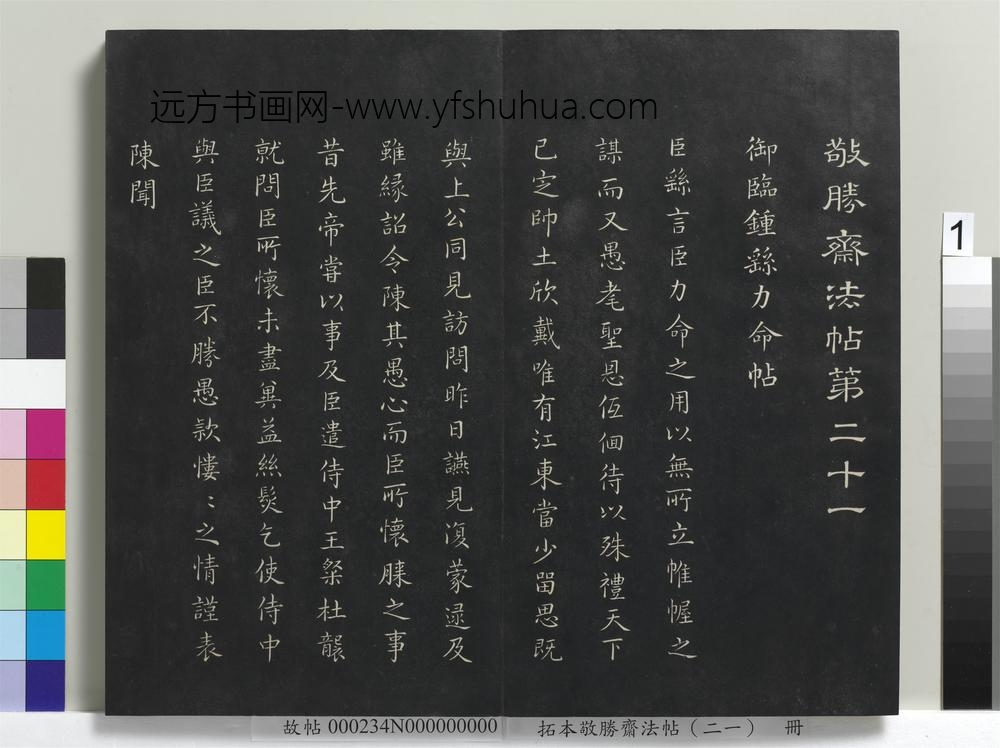 远方书画网-www.yfshuhua.com
敬勝齋法帖第二十一
御臨鍾繇力命帖
臣繇言臣力命之用以無所立帷幄之
謀而又愚耄聖恩伍徊待以殊禮天下
已定帥土欣戴唯有江東當少留思既
與上公同見訪問昨日讌見復蒙逮及
雖緣詔令陳其愚心而臣所懷腞之事
昔先帝嘗以事及臣遣侍中王粲杜襲
就問臣所懷未盡冀益絲髮乞使侍中
與臣議之臣不勝愚款慺〻之情謹表
陳聞
1
故帖 000234N000000000
拓本敬勝齋法帖（二一） 冊